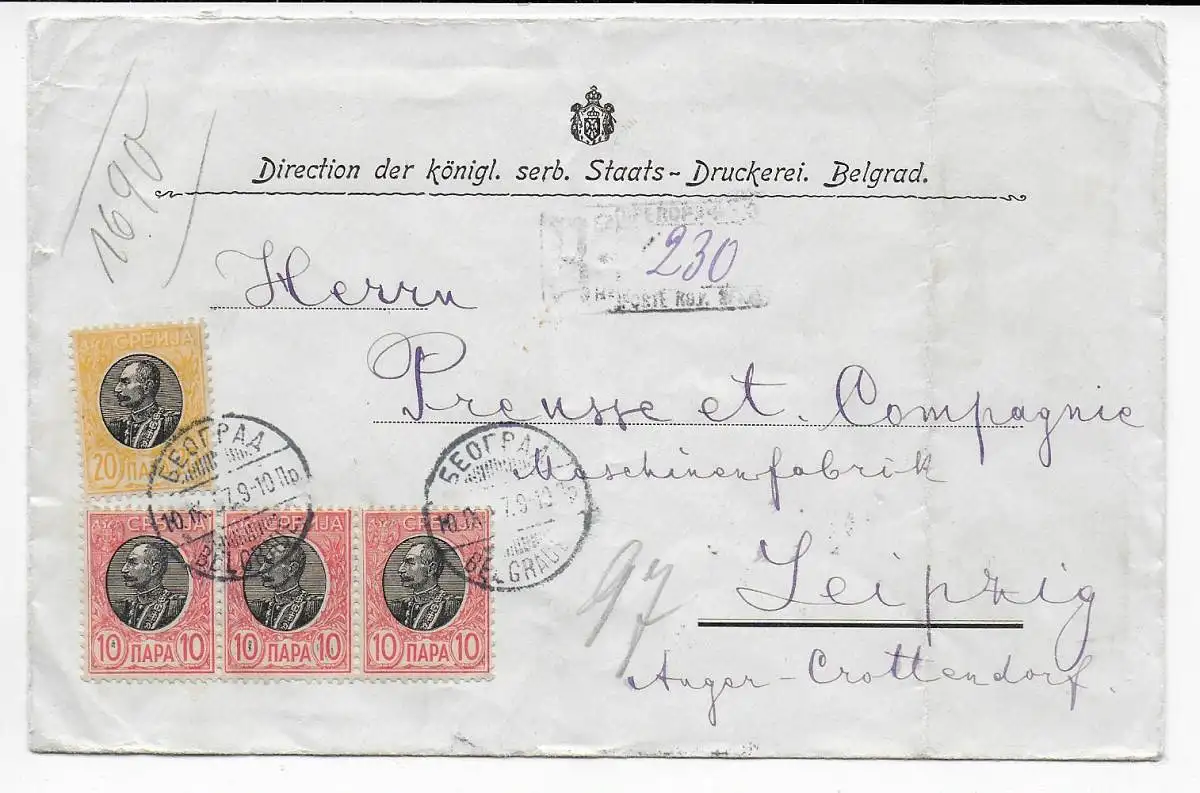 1690
Direction der königl. serb. Staats-Druckerei. Belgrad.
R
230
Herrn
Preusse et. Compagnie
Maschinenfabrik
Leipzig
Anger-Crottendorf.
97
СРБИЈА
20 ПАРА
БЕОГРАД
10.IX. 7.9-10 Пр.
BELGRAD
БЕОГРАД
7.9-10 Пр
BELGRADE
СРБИЈА
СРБИЈА
СРБИЈА
10 ПАРА 10
10 ПАРА 10
10 ПАРА 10